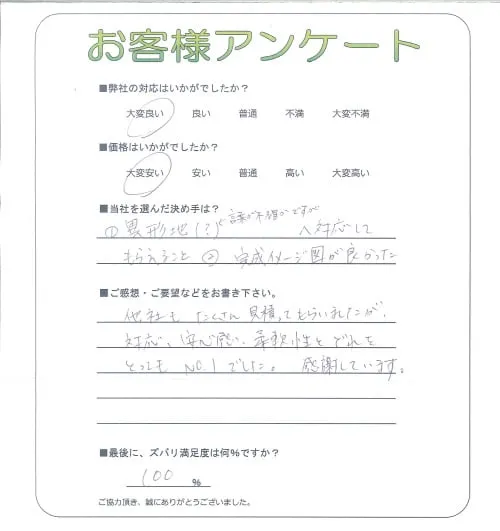 お客様アンケート
■弊社の対応はいかがでしたか？
大変良い 良い 普通 不満 大変不満
■価格はいかがでしたか？
大変安い 安い 普通 高い 大変高い
■当社を選んだ決め手は？
① 異形地(?) 語が不確かですが へ対応して
もらえること ② 完成イメージ図が良かった
■ご感想・ご要望などをお書き下さい。
他社も たくさん 見積ってもらいましたが、
対応、安心感、柔軟性と どれを
とっても NO.1 でした。 感謝しています。
■最後に、ズバリ満足度は何％ですか？
100 ％
ご協力頂き、誠にありがとうございました。